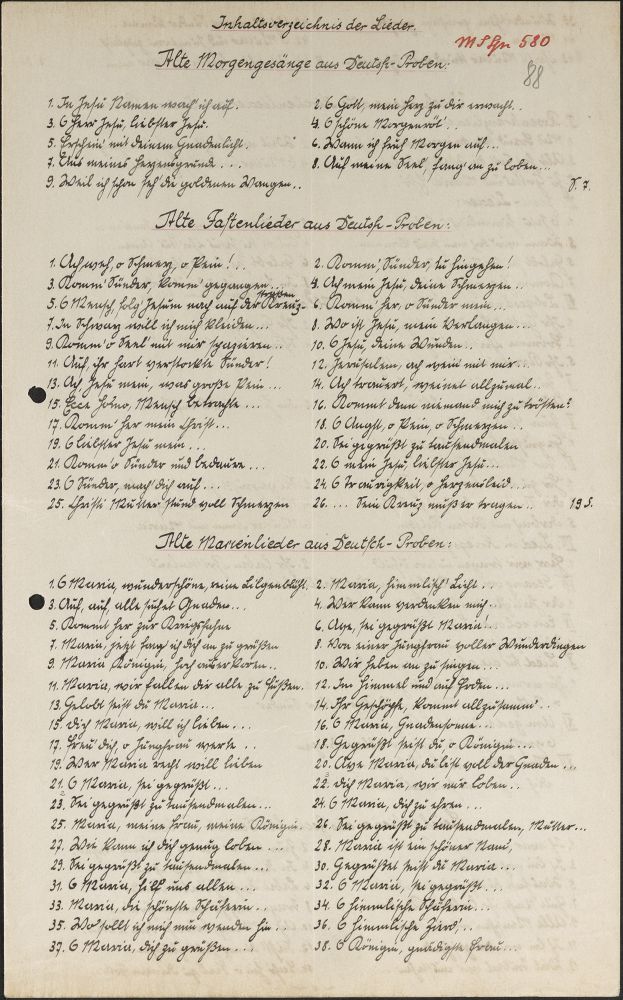 Inhaltsverzeichnis der Lieder.
MS Gn 580
88
Alte Morgengesänge aus Deutsch-Proben:
1. In Jesu Namen wach' ich auf. 2. O Gott, mein Herz zu dir erwacht..
3. O Herr Jesu, liebster Jesu. 4. O schöne Morgenröt'...
5. Erschein' mit deinem Gnadenlicht. 6. Wann ich früh Morgen auf...
7. Aus meines Herzensgrunde... 8. Auf meine Seel', fang' an zu loben...
9. Weil ich schon seh' die goldenen Wangen.. S. 7.
Alte Fastenlieder aus Deutsch-Proben:
1. Ach weh, o Schmerz, o Pein!.. 2. Komm', Sünder, tu hingehen!
3. Komm' Sünder, komm' gegangen... 4. Ach mein Jesu, deine Schmerzen..
5. O Mensch, folg' Jesum nach auf der Kreuz-straßen 6. Komm' her, o Sünder mein...
7. In Schwarz will ich mich kleiden... 8. Wo ist Jesu, mein Verlangen...
9. Komm' o Seel' mit mir spazieren.. 10. O Jesu, deine Wunden..
11. Auf, ihr hart verstockte Sünder! 12. Jerusalem, ach wein' mit mir...
13. Ach, Jesu mein, was große Pein... 14. Ach trauert, weinet allzumal..
15. Ecce homo, Mensch betrachte... 16. Kommt denn niemand mich zu trösten?
17. Komm' her mein Christ... 18. O Angst, o Pein, o Schmerzen..
19. O liebster Jesu mein... 20. Sei gegrüßt zu tausendmalen
21. Komm' o Sünder und bedaure... 22. O mein Jesu, liebster Jesu...
23. O Sünder, mach' dich auf... 24. O Traurigkeit, o Herzensleid...
25. Christi Mutter stund voll Schmerzen 26. ... Sein Kreuz mußt er tragen.. 19 S.
Alte Marienlieder aus Deutsch-Proben:
1. O Maria, wunderschöne, reine Lilgenblühl. 2. Maria, himmlisch' Licht..
3. Auf, auf, alle suchet Gnaden... 4. Wer kann verdenken mich..
5. Kommt her zur Kriegsfahne 6. Ave, sei gegrüßt Maria!..
7. Maria, jetzt fang' ich dich an zu grüßen 8. Von einer Jungfrau voller Wunderdingen
9. Maria Königin, hoch auserkoren.. 10. Wir heben an zu singen...
11. Maria, wir fallen dir alle zu Füßen. 12. Im Himmel und auf Erden...
13. Gelobt seist du Maria... 14. Ihr Geschöpfe, kommt allzusamm'..
15. Dich Maria, will ich lieben... 16. O Maria, Gnadensonne...
17. Freu' dich, o Jungfrau werte.. 18. Gegrüßt seist du, o Königin...
19. Wer Maria recht will lieben 20. Ave Maria, du bist voll der Gnaden...
21. O Maria, sei gegrüßt... 22. Dich Maria, wir nur loben..
23. Sei gegrüßt zu tausendmalen... 24. O Maria, dich zu ehren...
25. Maria, meine Frau, meine Königin 26. Sei gegrüßt zu tausendmalen, Mutter...
27. Wie kann ich dich genug loben... 28. Maria ist ein schöner Nam',
29. Sei gegrüßt zu tausendmalen... 30. Gegrüßet seist du Maria...
31. O Maria, hilf uns allen... 32. O Maria, sei gegrüßt...
33. Maria, die schönste Schäferin... 34. O himmlische Schäferin...
35. Wo sollt ich mich nun wenden hin... 36. O himmlische Zierd'...
37. O Maria, dich zu grüßen... 38. O Königin, gnädigste Frau...